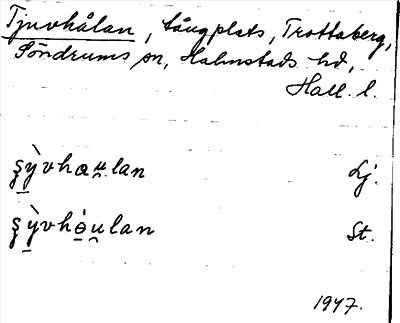 Tjuvhålan, tångplats, Trottaberg,
Söndrums sn, Halmstads hd,
Hall. l.
ş̱ỳvhau̯lan Lj.
ş̱ỳvhɵ̱́u̯lan St.
1947.